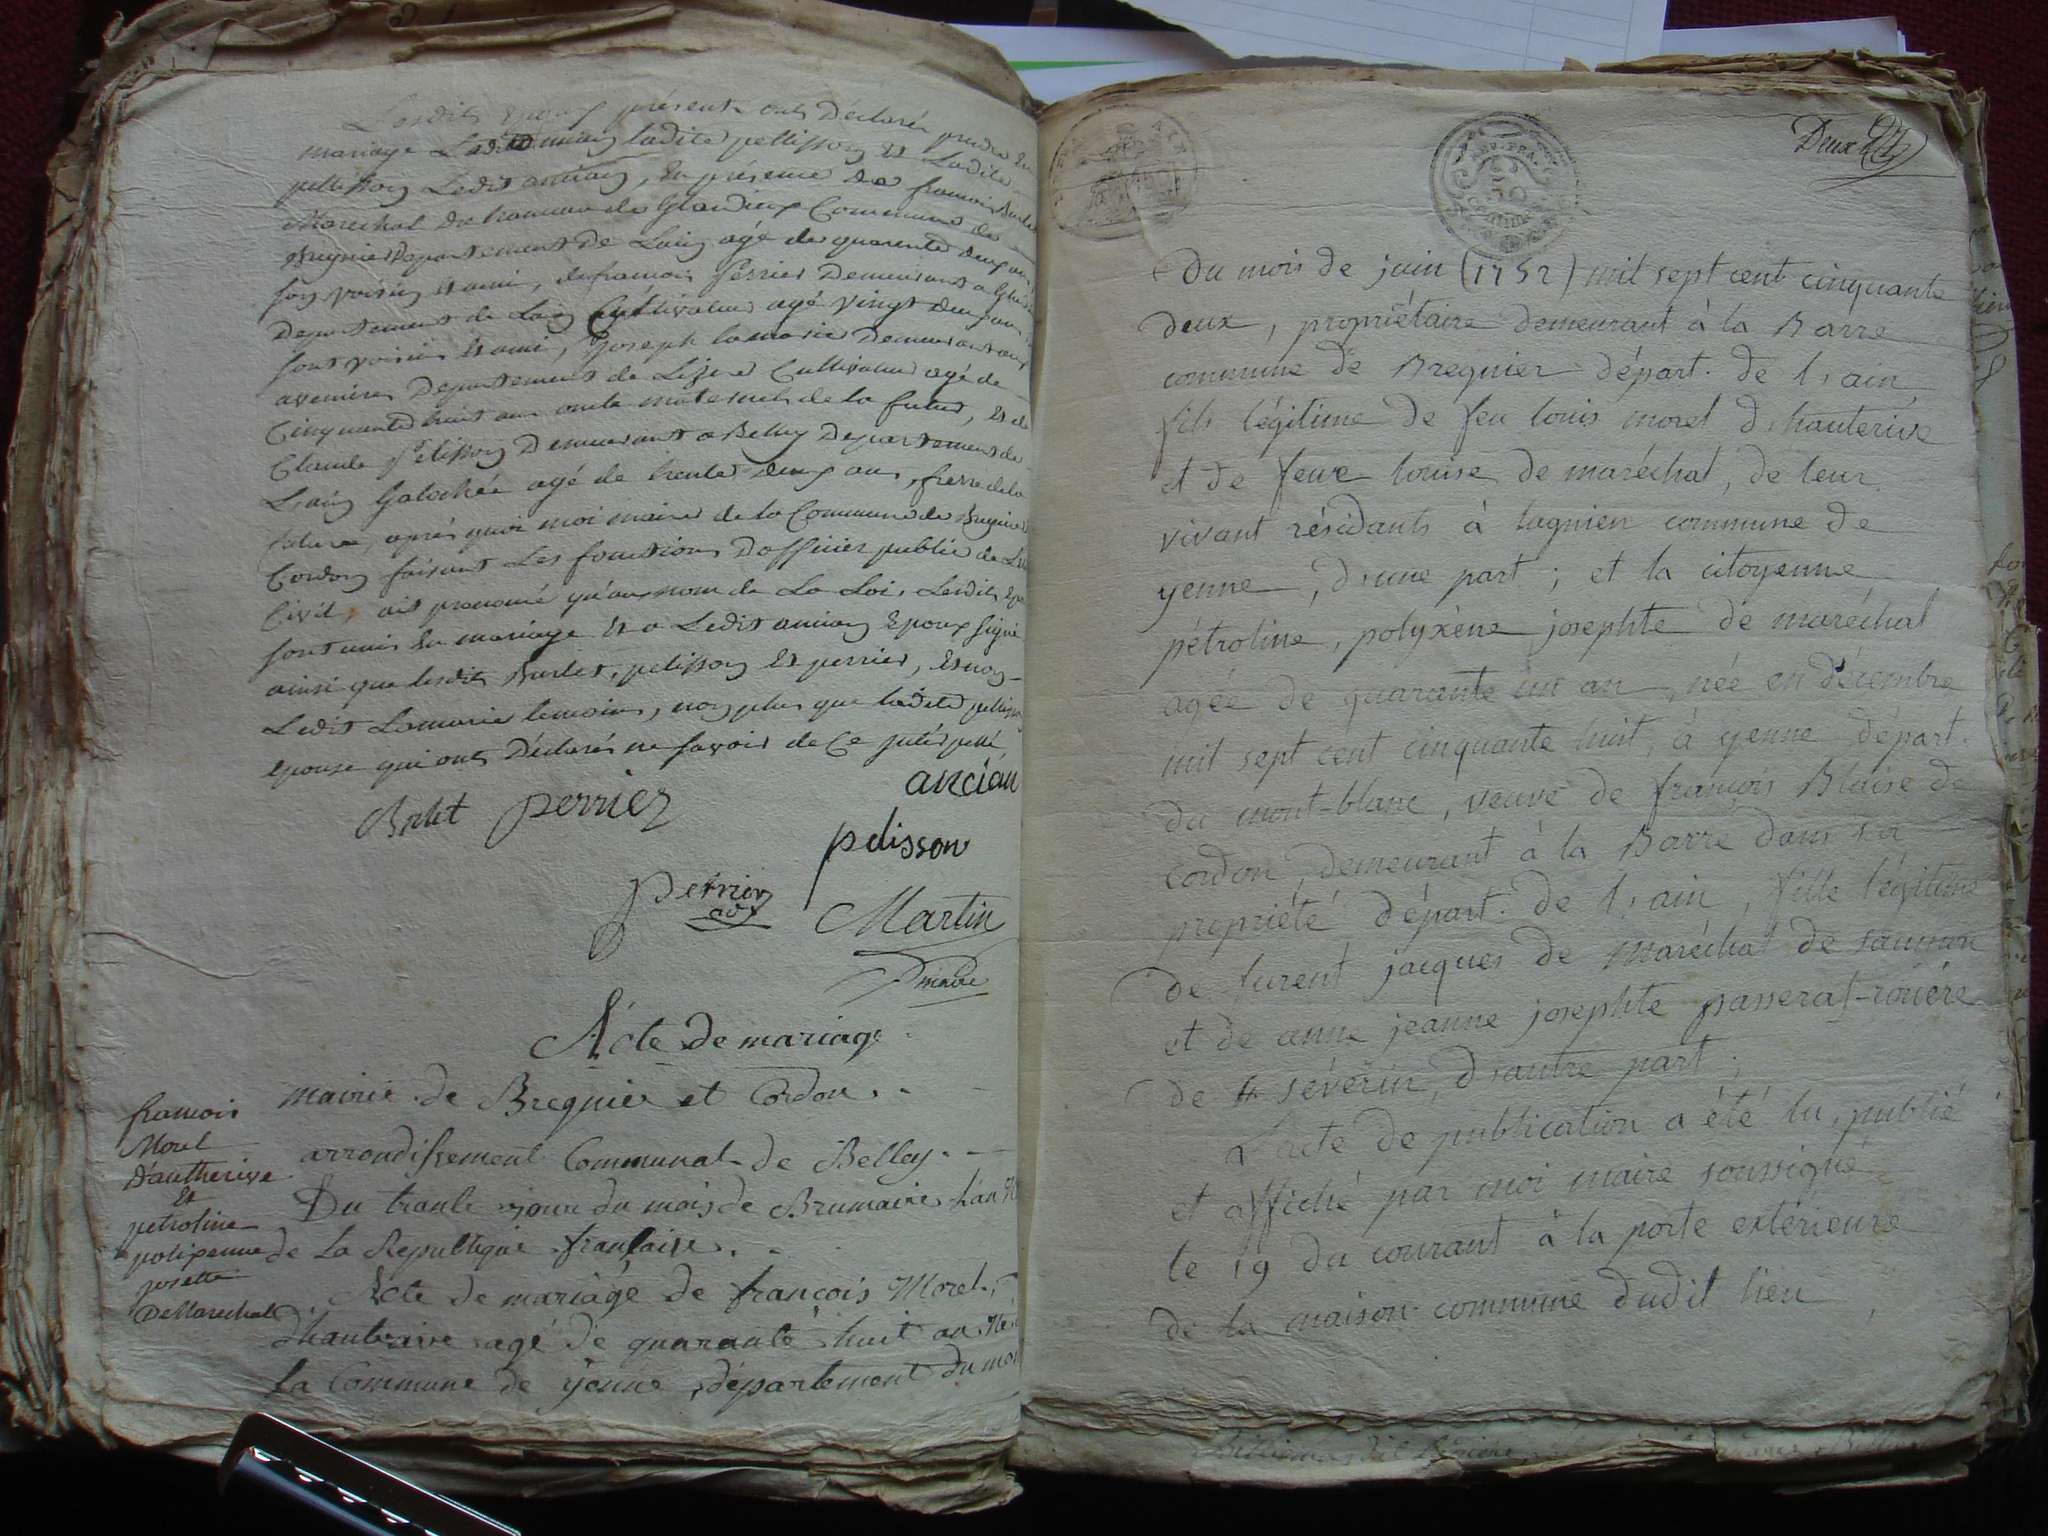 Lesdits Epoux présents ont Déclarés prendre En
mariage Ledit ancian ladite pellisson Et Ladite
pellisson Ledit ancian, En présence de francois Burlet
Marechal du hameau de Glandieux Commune de
Bregnier Departement de Lain agé de quarente deux ans
son voisin et ami, de francois perrier Demeurant a
Departement de Lain Cultivateur agé vingt deux ans
sont voisin et ami, Joseph lamarie Demeurant aux
avenieres Departement de Lisere Cultivateur agé de
Cinquante huit ans oncle maternel de la future, Et de
Claude Pelisson Demeurant a Belley Departement de
Lain Galochée agé de trente deux ans, frere de la
future, après quoi moi maire de la Commune de Bregnier
Cordon faisant Les fonctions D'officier public de L'
Civil, ait prononcé qu'au nom de La Loi, Lesdits Epoux
sont unis En mariage Et a Ledit ancian Epoux signé
ainsi que lesdits Burlet, pelisson Et perrier, Et non
Ledit Lamarie temoins, non plus que ladite pellisson
Epouse qui ont Déclarés ne savoir de Ce
ancian
Burlet perrier
pelisson
Perrier
adj
Martin
maire
Acte de mariage
mairie de Bregnier et Cordon.
arrondissement Communal de Belley.
francois
Morel
D'autherive
Et
petroline
polixenne
josette
De Marechal
Du trante jour du mois de Brumaire l'an
de La Republique française.
Acte de mariage de françois Morel
d'hauterive agé de quarante huit an Né
la Commune de yenne, département du mon
Deux
REP. FRA.
50
CENTIME
du mois de juin (1752) mil sept cent cinquante
deux, propriétaire demeurant à la Barre
commune de Bregnier départ. de l'ain
fils légitime de feu louis morel d'hauterive
et de feue louise de maréchal, de leur
vivant résidants à lagnien commune de
yenne, d'une part; et la citoyenne
pétroline, polyxène josephte de maréchal
agée de quarante un an, née en décembre
mil sept cent cinquante huit à yenne départ.
du mont-blanc, veuve de françois Blaise de
cordon, demeurant à la Barre dans sa
propriété départ. de l'ain, fille légitime
de furent jacques de maréchal de saunon
et de anne jeanne josephte passerat-rouëre
de st sévérin, d'autre part;
L'acte de publication a été lu, publié
et affiché par moi maire soussigné
le 19 du courant à la porte extérieure
de la maison commune dudit lieu